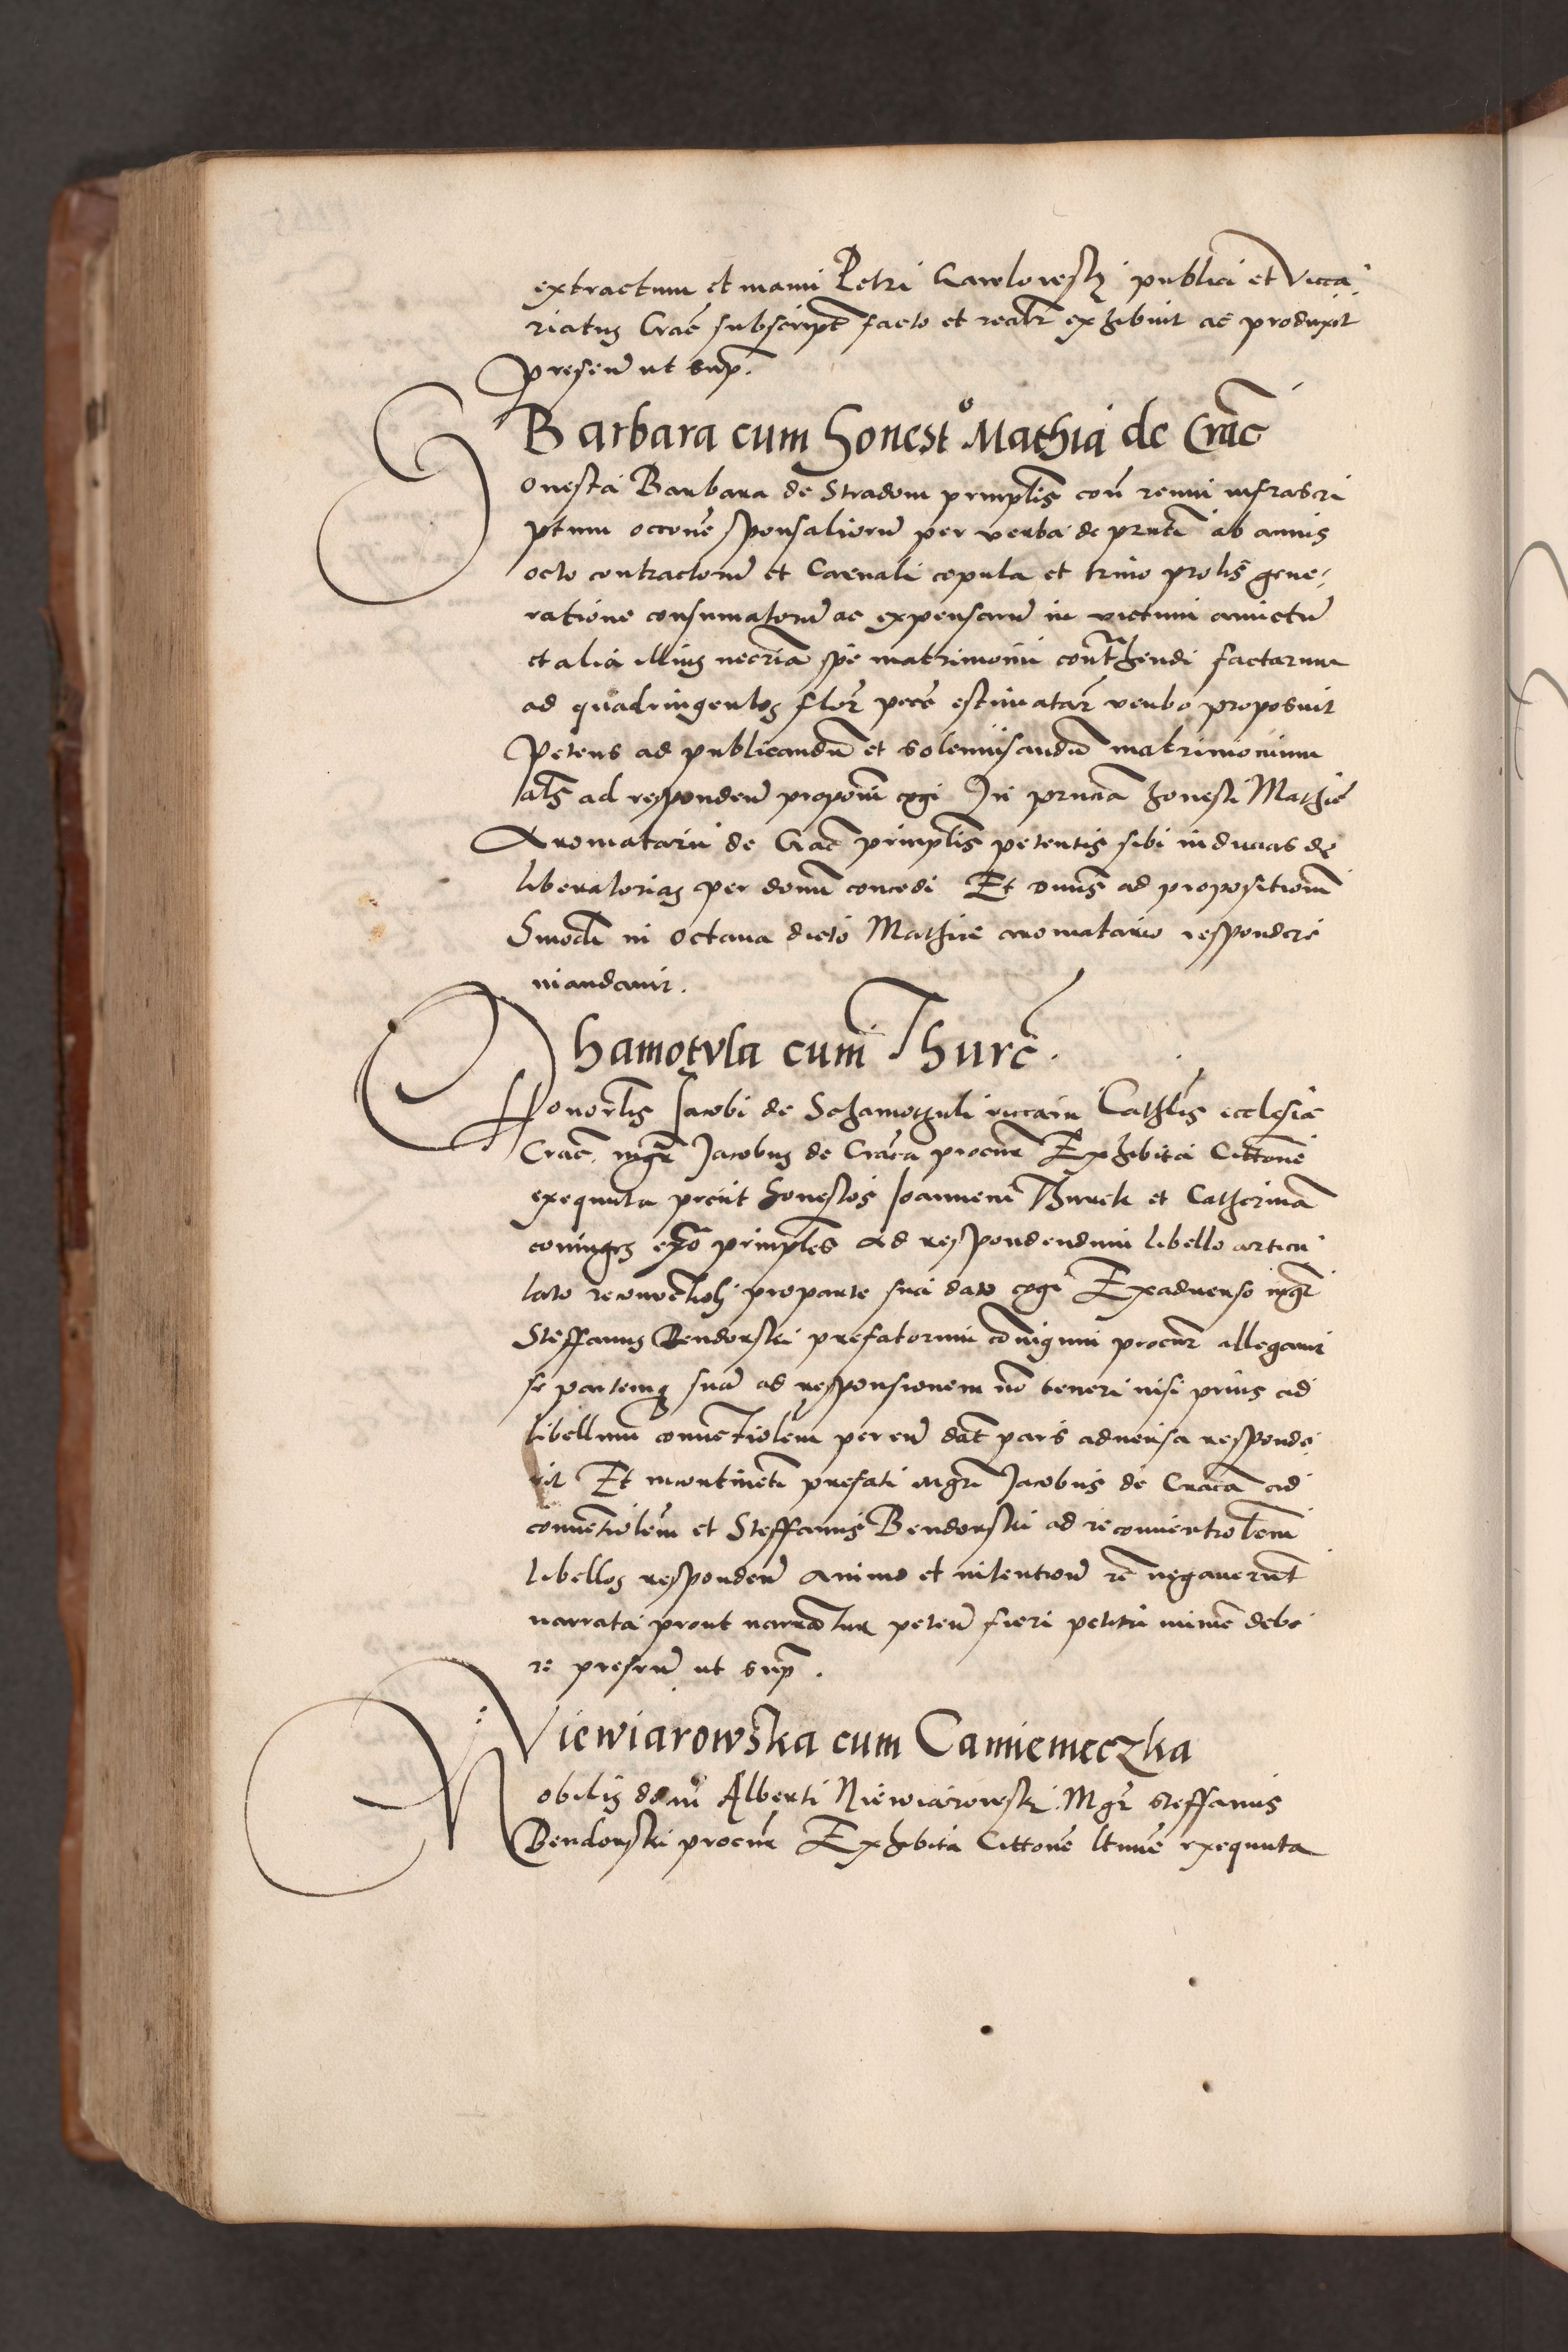 extractum et manu Petri Gawlowsky publici et Vicca
riatus Crac̃ subscript̃ facto et realr̃ exhibuit ac produxit
presen̄ ut sup̃.
Barbara cum honesto Mathia de Crac̃
Honesta Barbara de Stradom prnp̃lis con̄ reum infrascri
ptum occon̄e sponsaliorū per verba de pn̄ti ab annis
octo contractorū et Carnali copula et trino prolis gene-
ratione consumatorū ac expensarū in victum amictū
et alia illius necr̄ia spe matrimonii cont̄hendi factarum
ad quadringentos flor̄ pec̄e estimatar̄ verbo proposuit
Petens ad publicandū et solemnisandū matrimonium
als̄ ad respondeñ proponī cogi In prn̄cia honesti Mathie
Aromatarii de Crac̃ prinp̃lis petentis sibi inducias de
liberatorias per dom̄ concedi Et dnūs ad propositionē
hmōdi in octava dicto Mathie aromatario respondere
mandavit.
Shamotula cum Thurc̃.
Honorl̃is Jacobi de Schamothuli viccarii Cathl̃is ecclesiae
Crac̃. mgr̄ Jacobus de Crac̃a procur̄ Exhibita Citton̄e
exequuta prēiit honestos Joannem Thurek et Catherinā
coniuges exõ prinp̃les ad respondendum libello articu
lato reconvētioli pro parte sua dato cogi Exadverso mgr̄
Steffanus Bendonski prefatorum cōniugum procur̄ allegavit
se partemq̃ suā ad responsionem nō teneri nisi prius ad
libellum conuētiolem per eū dat̄ pars adversa responde
rit Et incontinēti prefati mgr̄i Jacobus de Crac̃a ad
conuētiolem et Steffanus Bendonski ad reconventiolem
libellos respondeñ animo et intentioñ r̄e negaverūt
narrata prout narrātur peteñ fieri petita minīe debe
re preseñ ut sup̃.
Niewiarowska cum Camieneczka
Nobilis dom̄ Alberti Niewiarowski Mgr̄ Steffanus
Bendonski procur̄ Exhibita Citton̄e lt̄ime exequuta